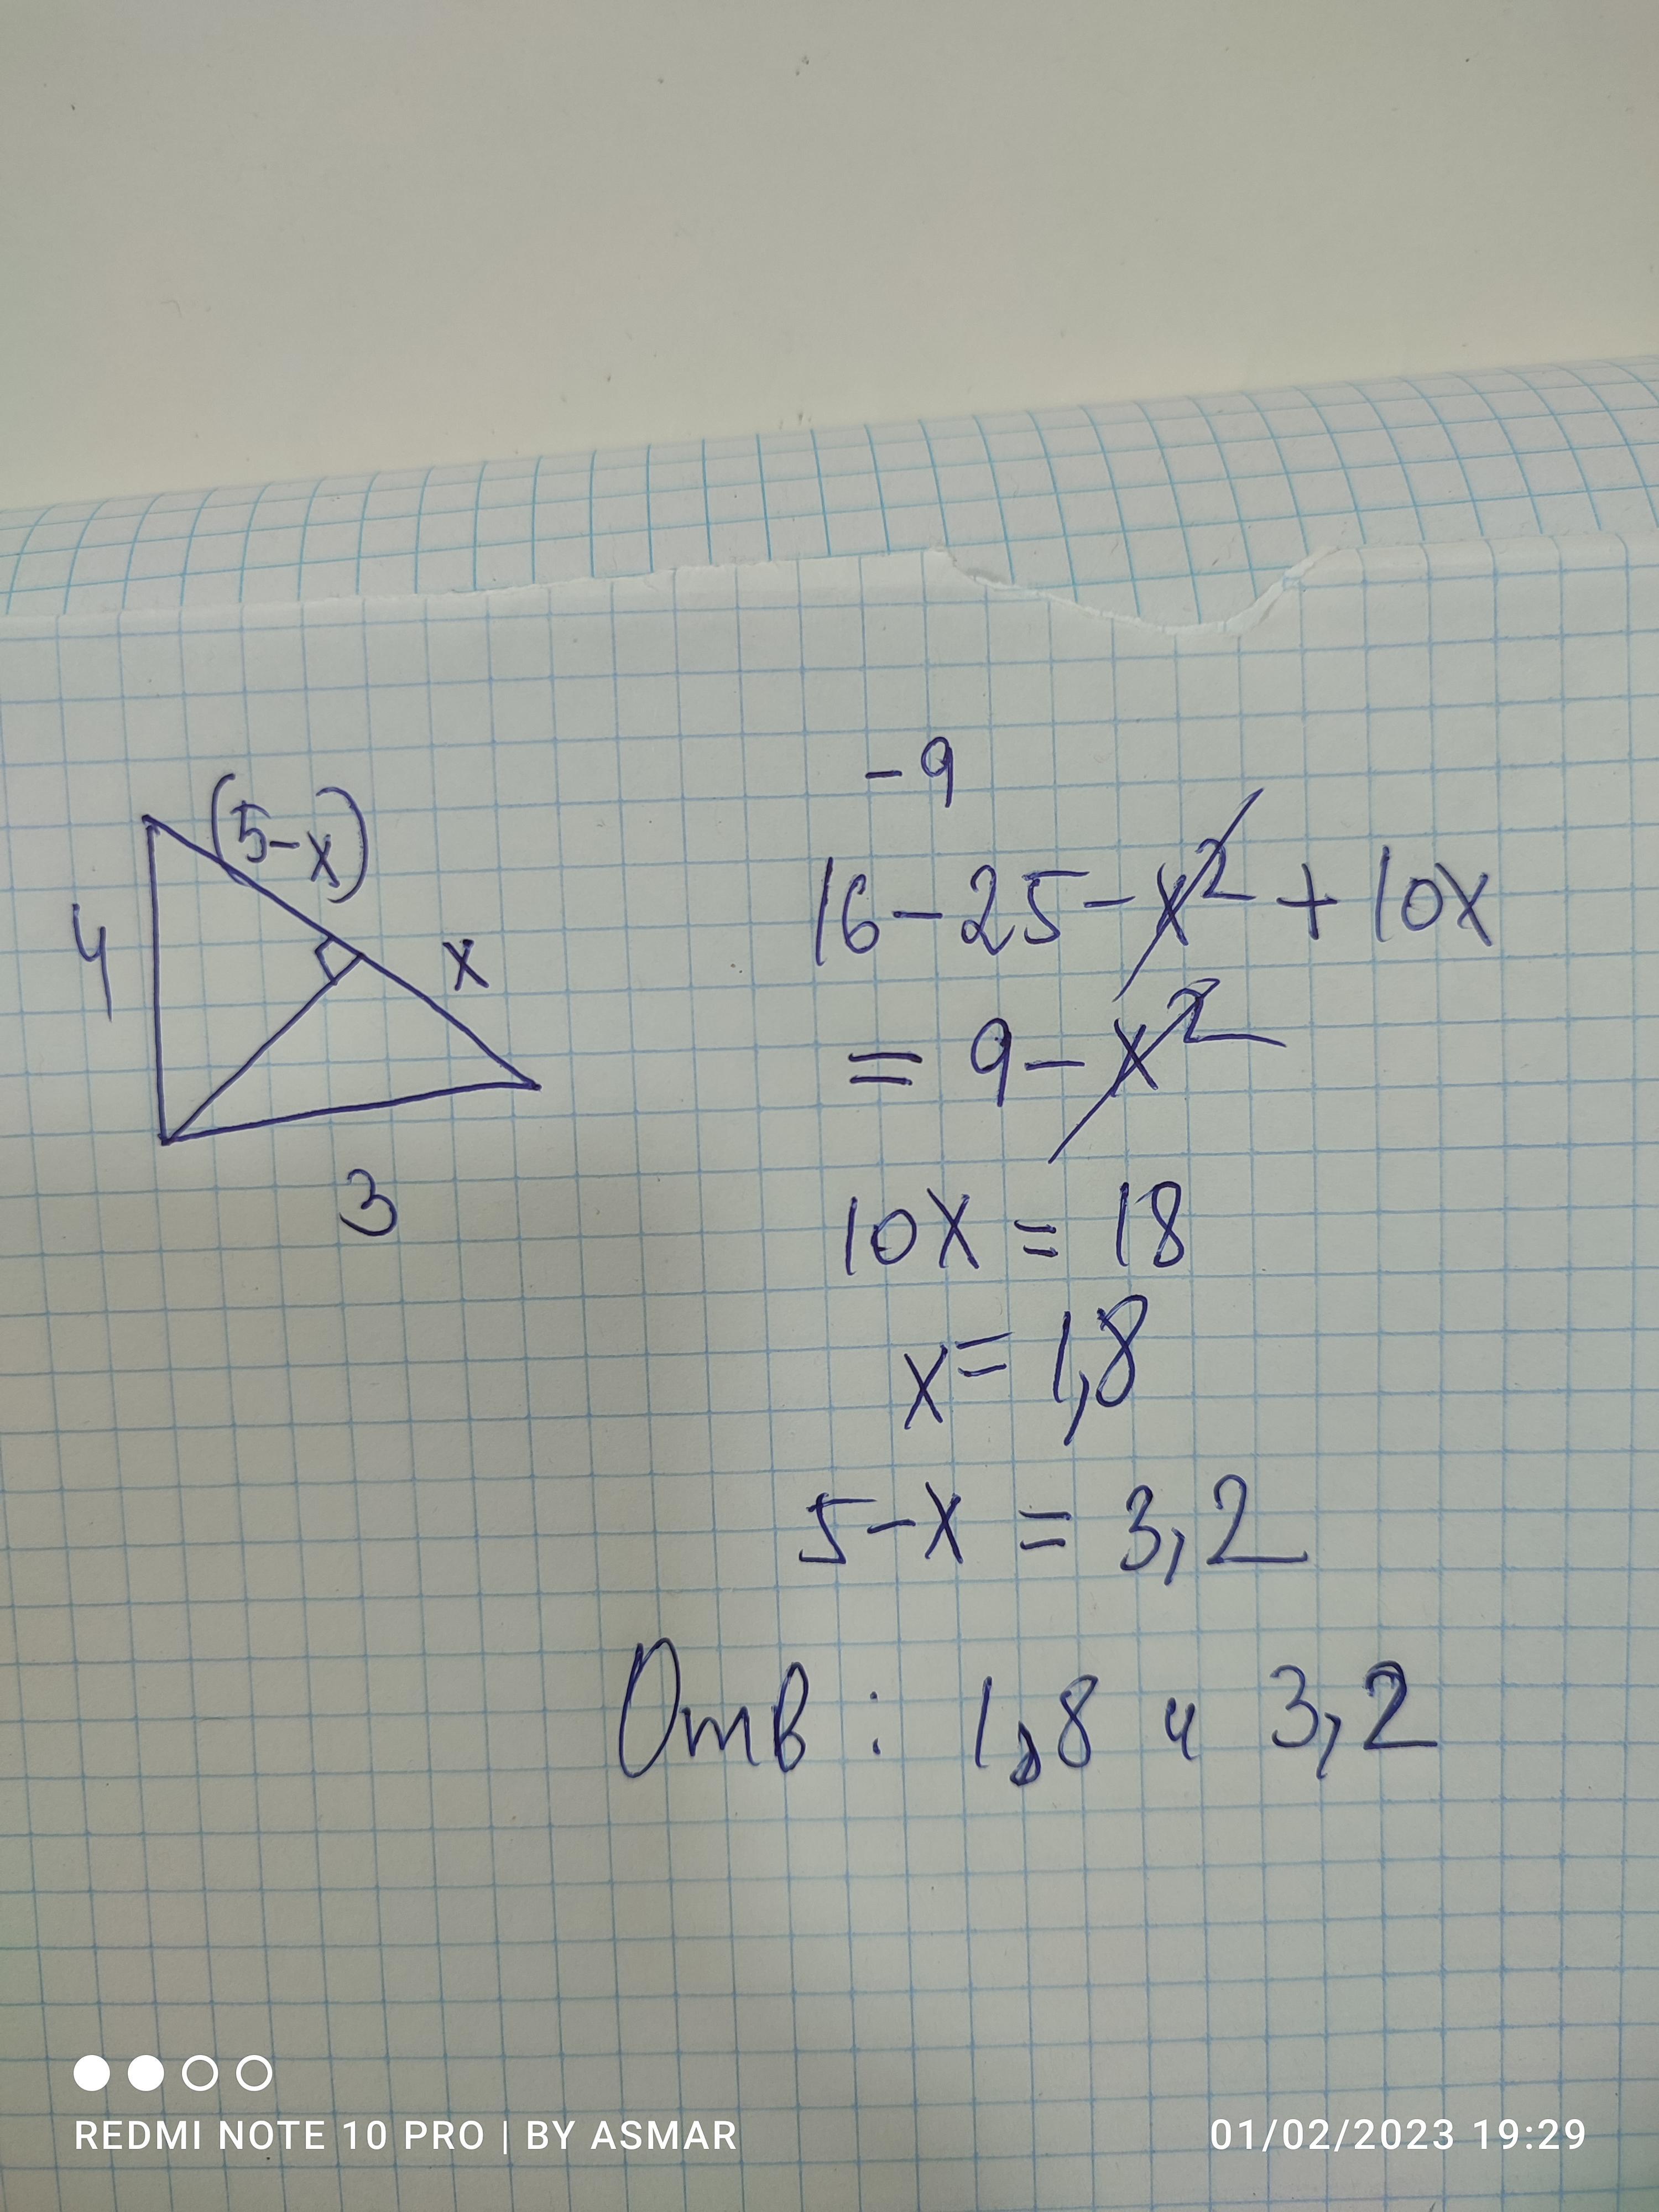 (5-x)
4
x
3
-9
16-25-x²+10x
= 9-x²
10x = 18
x = 1,8
5-x = 3,2
Отв: 1,8 и 3,2
REDMI NOTE 10 PRO | BY ASMAR
01/02/2023 19:29